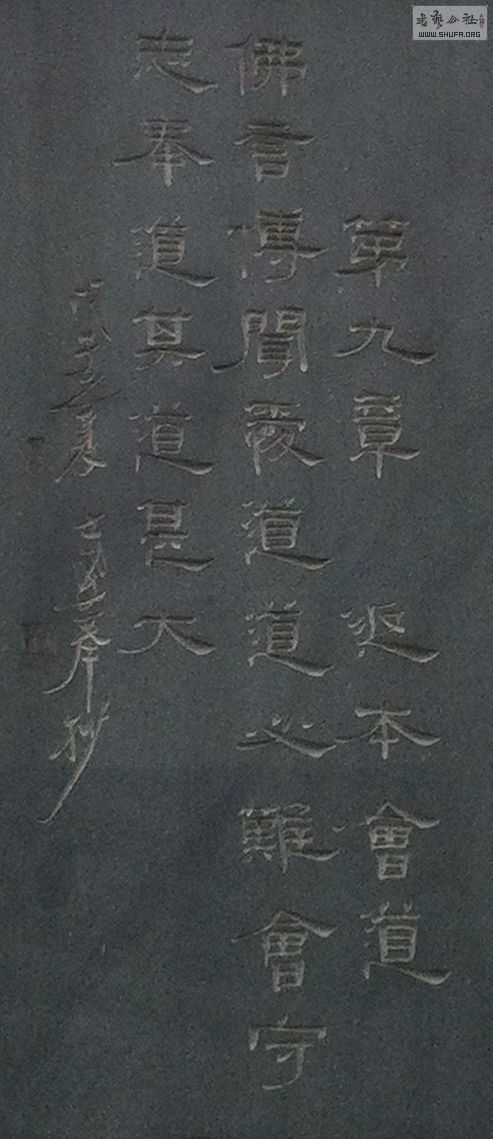 第九章 返本會道
佛言博聞愛道道必難會守
志奉道其道甚大
戊子夏 奉抄
書藝公社
WWW.SHUFA.ORG